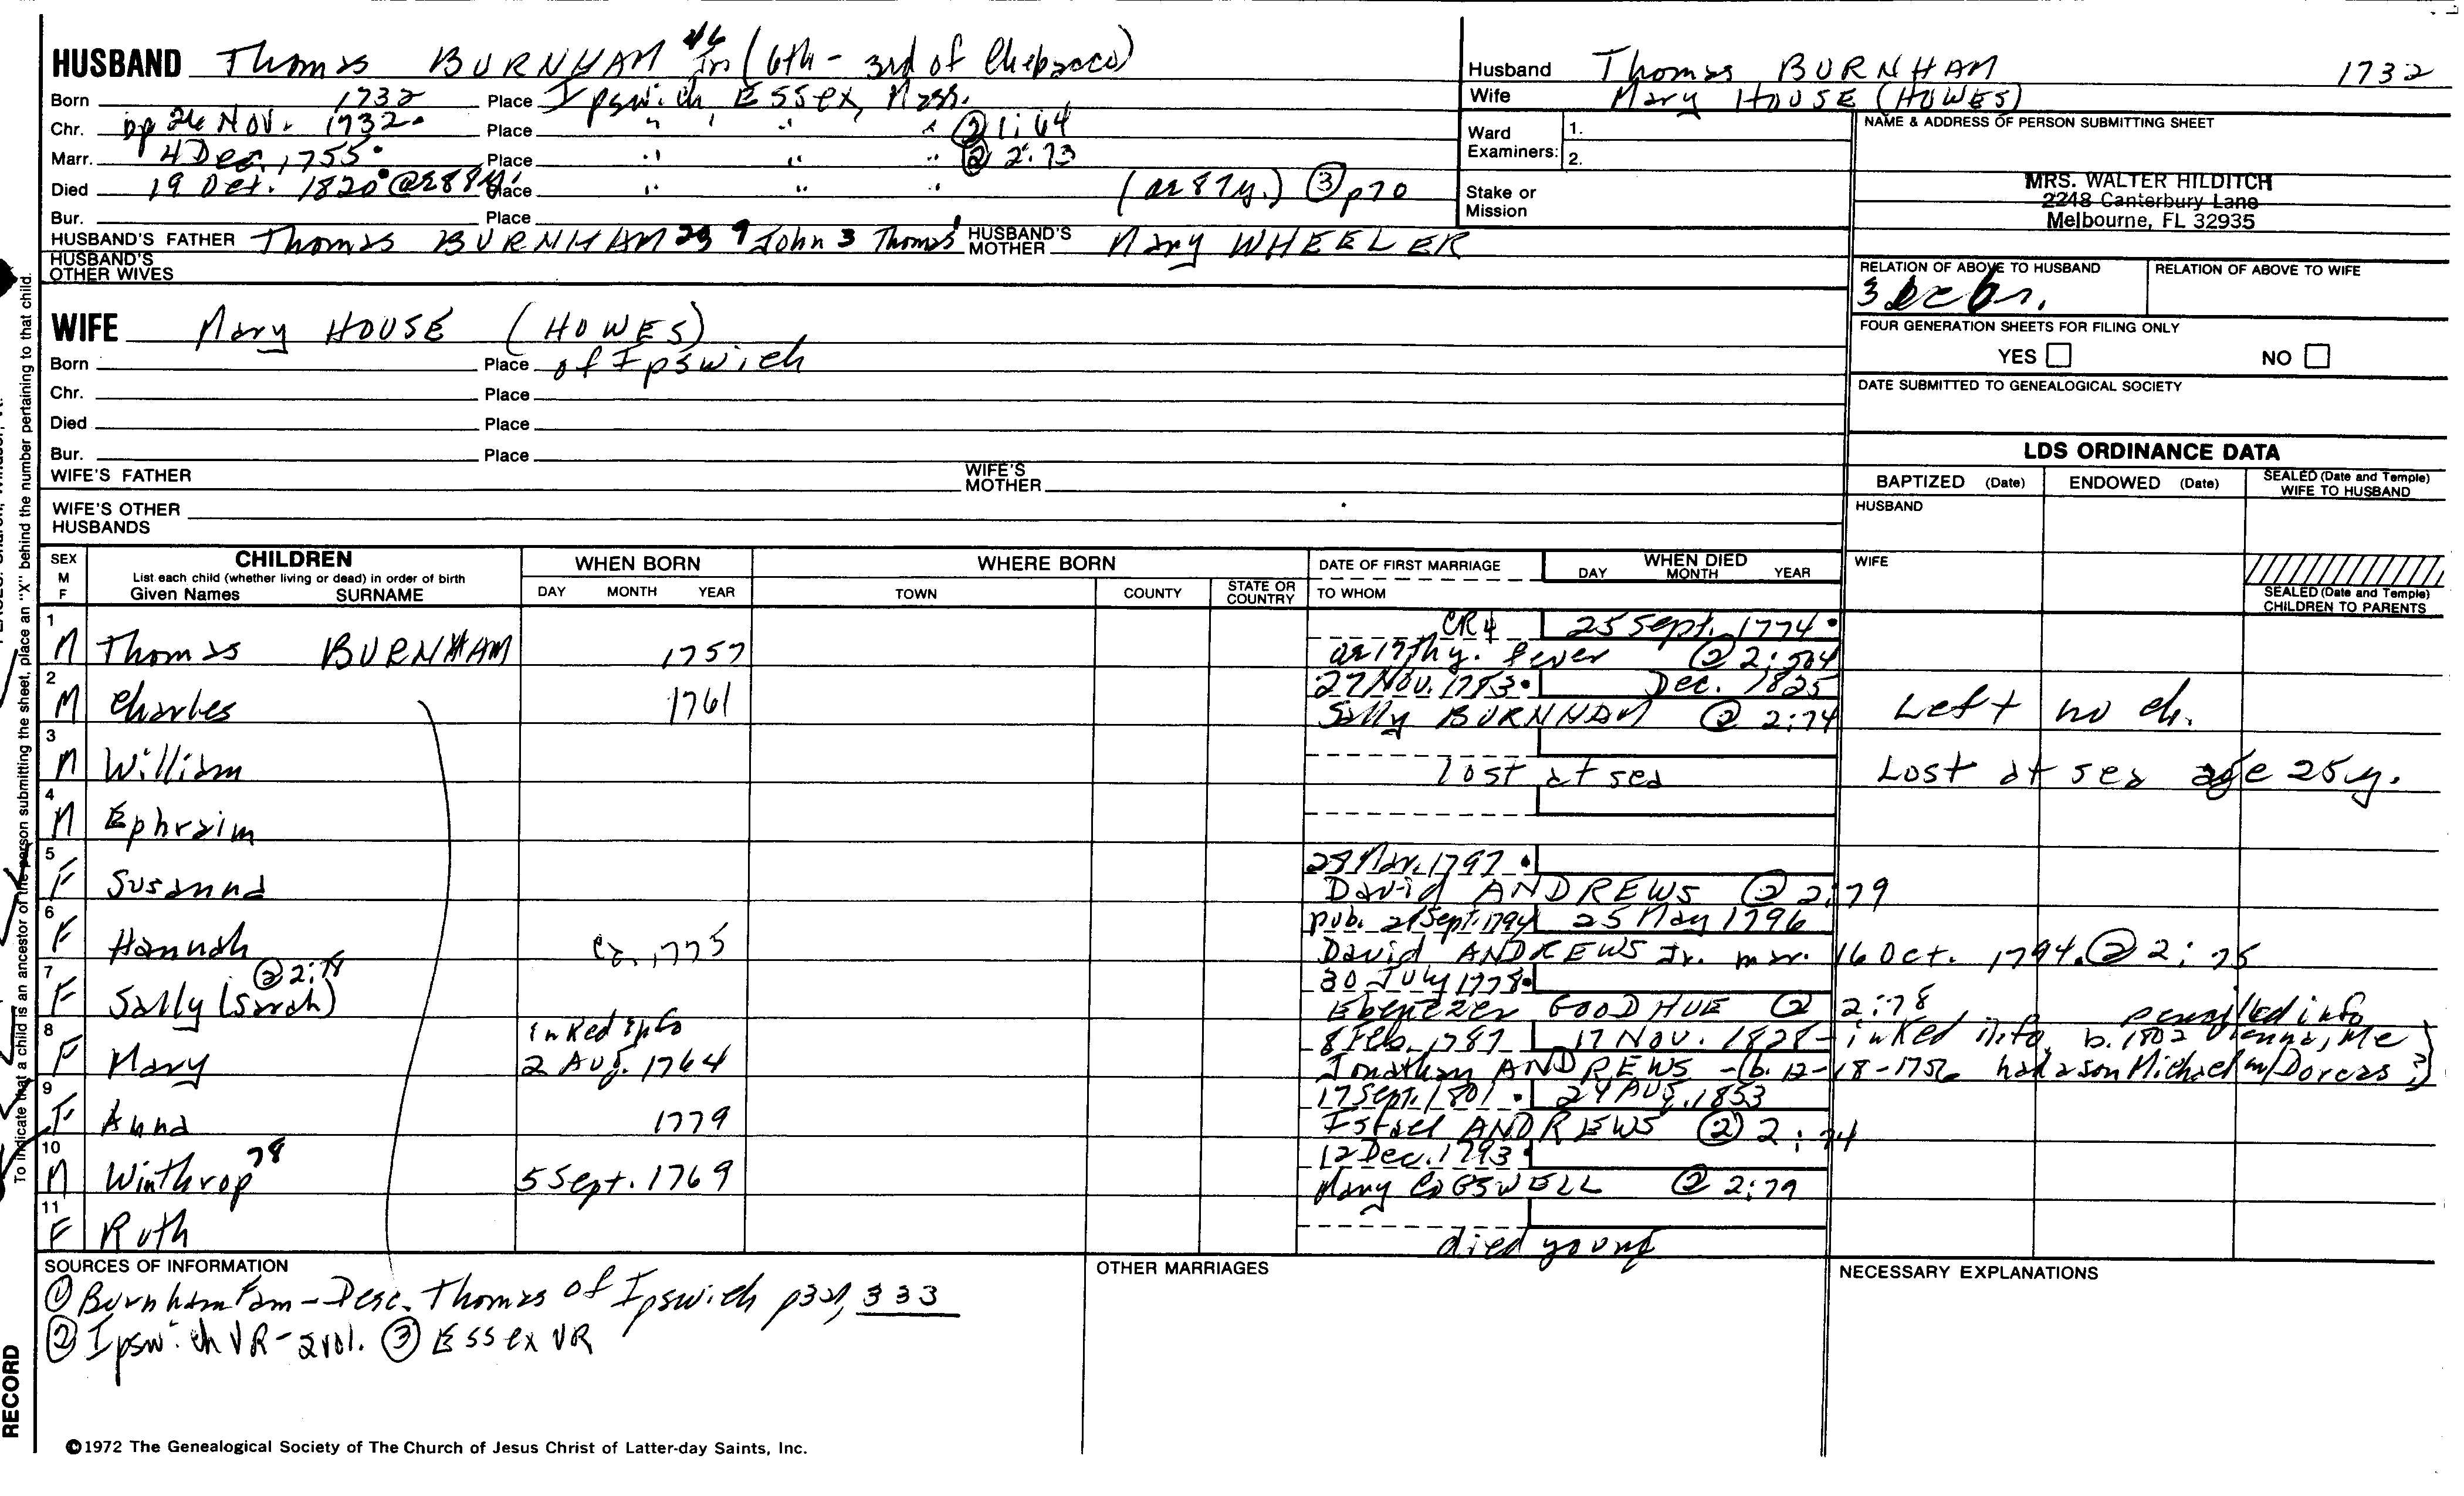 HUSBAND Thomas BURNHAM 46 Jr (6th - 3rd of Chebacco)
Born 1732 Place Ipswich Essex, Mass.
Chr. bp 26 Nov. 1732. Place " " " " ② 1:64
Marr. 4 Dec. 1755. Place " " " ② 2:73
Died 19 Oct. 1820 @ae 88y. Place " " " (ae 87y.) ③ p70
Bur. Place
HUSBAND'S FATHER Thomas BURNHAM 23 9 John 3 Thomas 1 HUSBAND'S MOTHER Mary WHEELER
HUSBAND'S OTHER WIVES
WIFE Mary HOUSE (HOWES)
Born Place of Ipswich
Chr. Place
Died Place
Bur. Place
WIFE'S FATHER WIFE'S MOTHER
WIFE'S OTHER HUSBANDS
Husband Thomas BURNHAM 1732
Wife Mary HOUSE (HOWES)
Ward Examiners: 1. 2.
Stake or Mission
NAME & ADDRESS OF PERSON SUBMITTING SHEET
MRS. WALTER HILDITCH
2248 Canterbury Lane
Melbourne, FL 32935
RELATION OF ABOVE TO HUSBAND RELATION OF ABOVE TO WIFE
FOUR GENERATION SHEETS FOR FILING ONLY
YES NO
DATE SUBMITTED TO GENEALOGICAL SOCIETY
LDS ORDINANCE DATA
BAPTIZED (Date) ENDOWED (Date) SEALED (Date and Temple) WIFE TO HUSBAND
HUSBAND
WIFE
SEALED (Date and Temple) CHILDREN TO PARENTS
SEX M F CHILDREN List each child (whether living or dead) in order of birth Given Names SURNAME
WHEN BORN DAY MONTH YEAR
WHERE BORN TOWN COUNTY STATE OR COUNTRY
DATE OF FIRST MARRIAGE TO WHOM
WHEN DIED DAY MONTH YEAR
1 CR4 25 Sept. 1774.
M Thomas BURNHAM 1757 ae 17thy. fever ② 2:504
2 27 Nov. 1783. Dec. 1825
M Charles 1761 Sally BURNHAM ② 2:74 Left no ch.
3
M William lost at sea Lost at sea age 25y.
4
M Ephraim
5 Mar. 1797.
F Susanna David ANDREWS ② 2:79
6 pub. Sept. 1794 25 May 1796
F Hannah ca. 1775 David ANDREWS Jr. mar. 16 Oct. 1794. ② 2:75
7 ② 2:78 30 July 1778.
F Sally (Sarah) Ebenezer GOODHUE ② 2:78
8 inked info 8 Feb. 1787 17 Nov. 1828 - inked info. b. 1802 Vienna, Me penciled info
F Mary 2 Aug. 1764 Jonathan ANDREWS - (b. 12-18-1756 had a son Michael m/Dorcas ?)
9 17 Sept. 1801. 24 Aug. 1853
F Anna 1779 Israel ANDREWS ② 2:74
10 12 Dec. 1793.
M Winthrop 78 5 Sept. 1769 Mary COGSWELL ② 2:79
11
F Ruth died young
SOURCES OF INFORMATION OTHER MARRIAGES NECESSARY EXPLANATIONS
① Burnham Fam - Desc. Thomas of Ipswich p321, 333
② Ipswich VR - 2 vol. ③ Essex VR
©1972 The Genealogical Society of The Church of Jesus Christ of Latter-day Saints, Inc.
To indicate that a child is an ancestor of the person submitting the sheet, place an "X" behind the number pertaining to that child.
RECORD